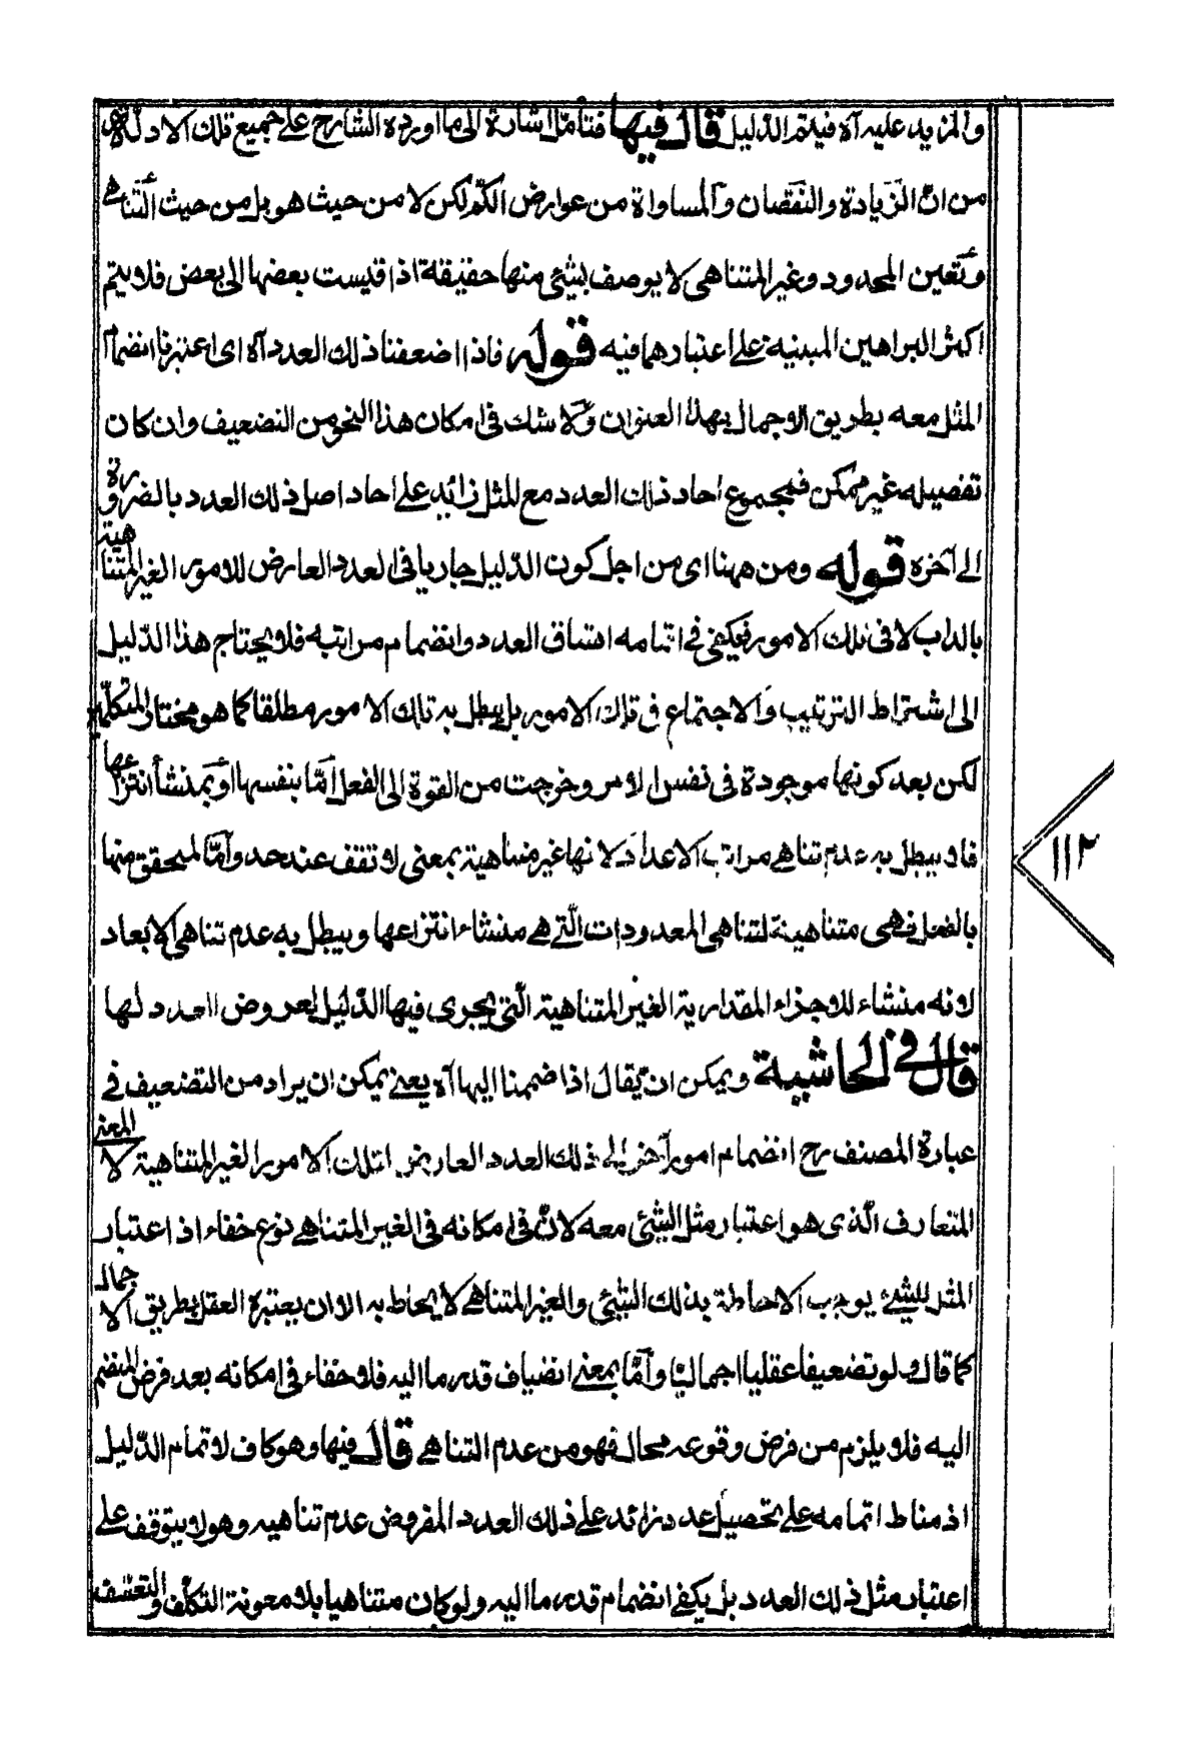 والمزيد عليه آه فيتم الدّليل قال فيها فتأمّل اشارة الى ما اورده الشارح على جميع تلك الادلة
من انّ الزّيادة والنّقصان والمساواة من عوارض الكمّ لكن لا من حيث هو بل من حيث التّناهي
وتعين المحدود وغير المتناهى لا يوصف بشئ منها حقيقة اذا قيست بعضها الى بعض فلا يتم
اكثر البراهين المبنية على اعتبارهما فيه قوله فاذا اضعفنا ذلك العدد آه اى اعتبرنا انضمام
المثل معه بطريق الاجمال بهذا العنوان ولا شك فى امكان هذا النحو من التضعيف وان كان
تفصيله غير ممكن فمجموع احاد ذلك العدد مع المثل زائد على احاد اصل ذلك العدد بالضرورة
الى آخره قوله ومن ههنا اى من اجل كون الدّليل جاريا فى العدد العارض للامور الغير المتناهية
بالذات لا فى تلك الامور فيكفى فى اتمامه اتساق العدد وانضمام مراتبه فلا يحتاج هذا الدّليل
الى اشتراط الترتيب والاجتماع فى تلك الامور بل يبطل به تلك الامور مطلقا كما هو مختار المتكلّمين
لكن بعد كونها موجودة فى نفس الامر وخرجت من القوة الى الفعل امّا بنفسها او بمنشأ انتزاعها
فلا يبطل به عدم تناهي مراتب الاعداد لانها غير متناهية بمعنى لا تقف عند حد وامّا المتحقق منها
بالفعل فهى متناهية لتناهى المعدودات الّتي هي منشاء انتزاعها ويبطل به عدم تناهى الابعاد
لانه منشاء للاجزاء المقدارية الغير المتناهية الّتى يجرى فيها الدّليل لعروض العدد لها
قال فى الحاشية ويمكن ان يقال اذا ضممنا اليها آه يعني يمكن ان يراد من التضعيف في
عبارة المصنف رح انضمام امور آخر الى ذلك العدد العارض لتلك الامور الغير المتناهية لا المعنى
المتعارف الّذى هو اعتبار مثل الشئ معه لانّ فى امكانه فى الغير المتناهي نوع خفاء اذ اعتبار
المثل للشئ يوجب الاحاطة بذلك الشئ والغير المتناهي لا يحاط به الا ان يعتبره العقل بطريق الاجمال
كما قال لو تضعيفا عقليا اجماليّا وامّا بمعنى انضياف قدر ما اليه فلا خفاء فى امكانه بعد فرض المنضم
اليه فلا يلزم من فرض وقوعه محال فهو من عدم التناهي قال فيها وهو كاف لاتمام الدّليل
اذ مناط اتمامه على تحصيل عدد زائد على ذلك العدد المفروض عدم تناهيه وهو لا يتوقف على
اعتبار مثل ذلك العدد بل يكفي انضمام قدر ما اليه ولو كان متناهيا بلا معونة التكلّف والتعسّف
١١٢